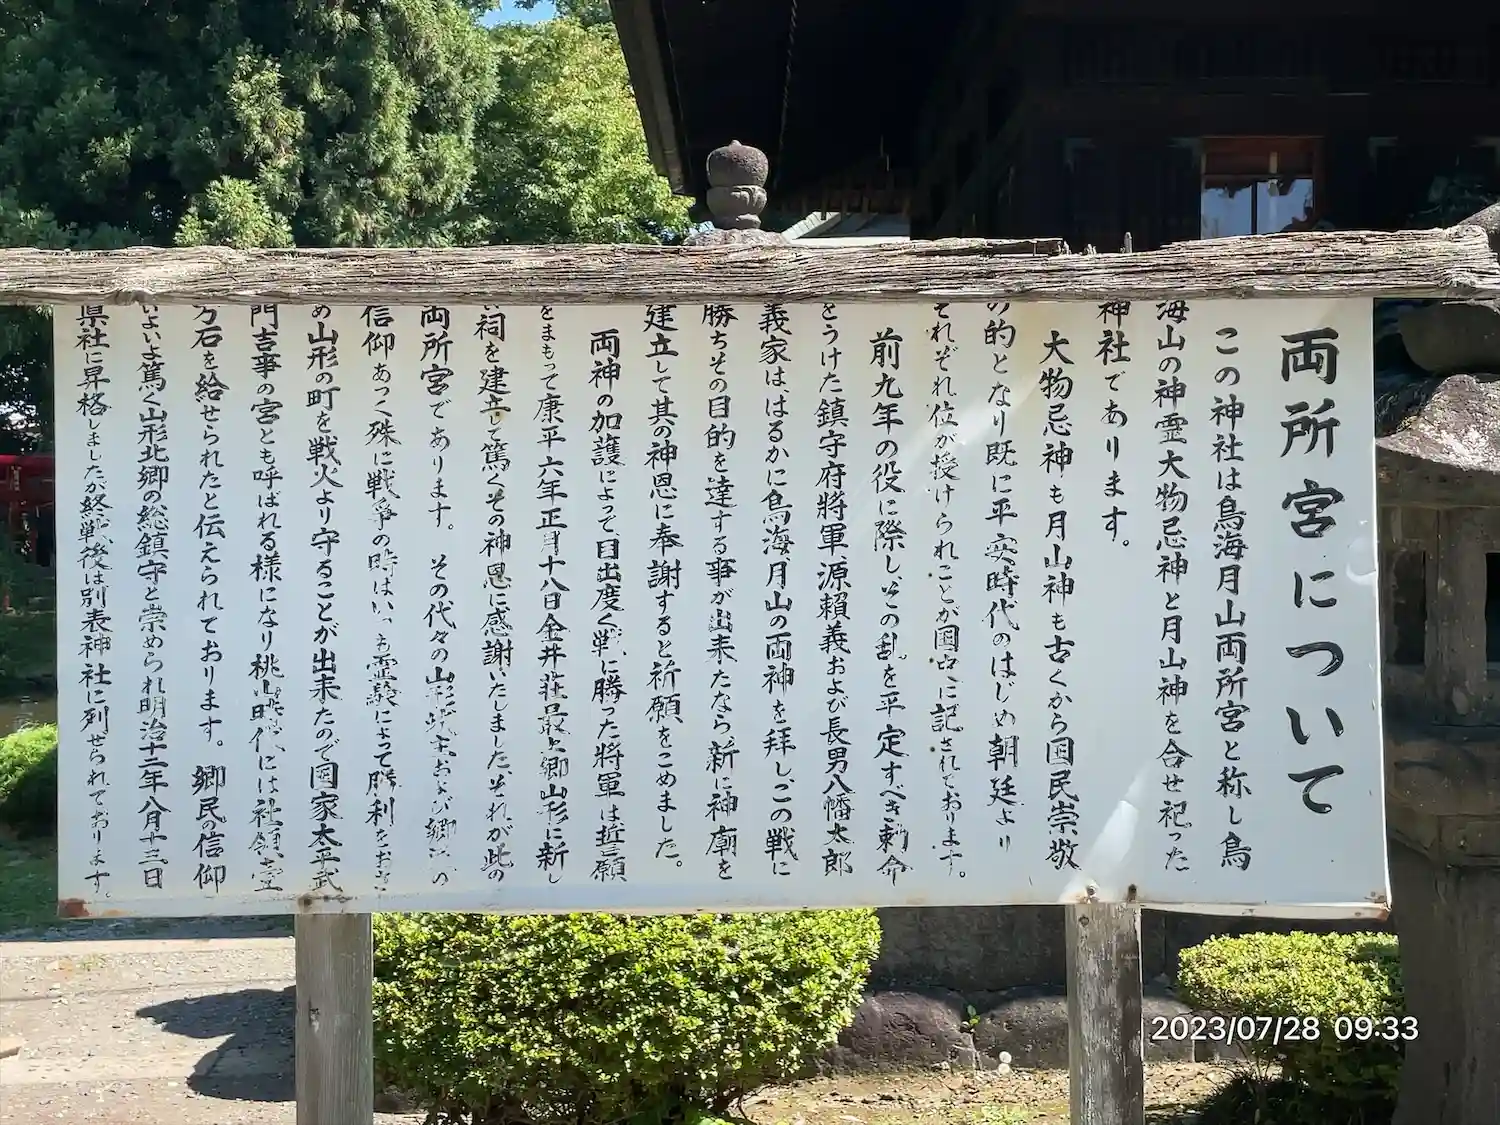 両所宮について
この神社は鳥海月山両所宮と称し鳥
海山の神霊大物忌神と月山神を合せ祀った
神社であります。
大物忌神も月山神も古くから国民崇敬
の的となり既に平安時代のはじめ朝廷より
それぞれ位が授けられことが国史に記されております。
前九年の役に際し、その乱を平定すべき勅命
をうけた鎮守府将軍源頼義および長男八幡太郎
義家は、はるかに鳥海、月山の両神を拝し、この戦に
勝ちその目的を達する事が出来たなら、新に神廟を
建立して其の神恩に奉謝すると祈願をこめました。
両神の加護によって目出度く戦に勝った将軍は誓願
をまもって康平六年正月十八日金井荘最上郷山形に新し
い祠を建立して篤くその神恩に感謝いたしました、それが此の
両所宮であります。その代々の山形城主および郷民の
信仰あつく殊に戦争の時はいつも霊験によって勝利をおさ
め山形の町を戦火より守ることが出来たので国家太平武
門吉事の宮とも呼ばれる様になり桃山時代には社領壹
万石を給せられたと伝えられております。郷民の信仰
いよいよ篤く山形北郷の総鎮守と崇められ明治十二年八月十三日
県社に昇格しましたが終戦後は別表神社に列せられております。
2023/07/28 09:33